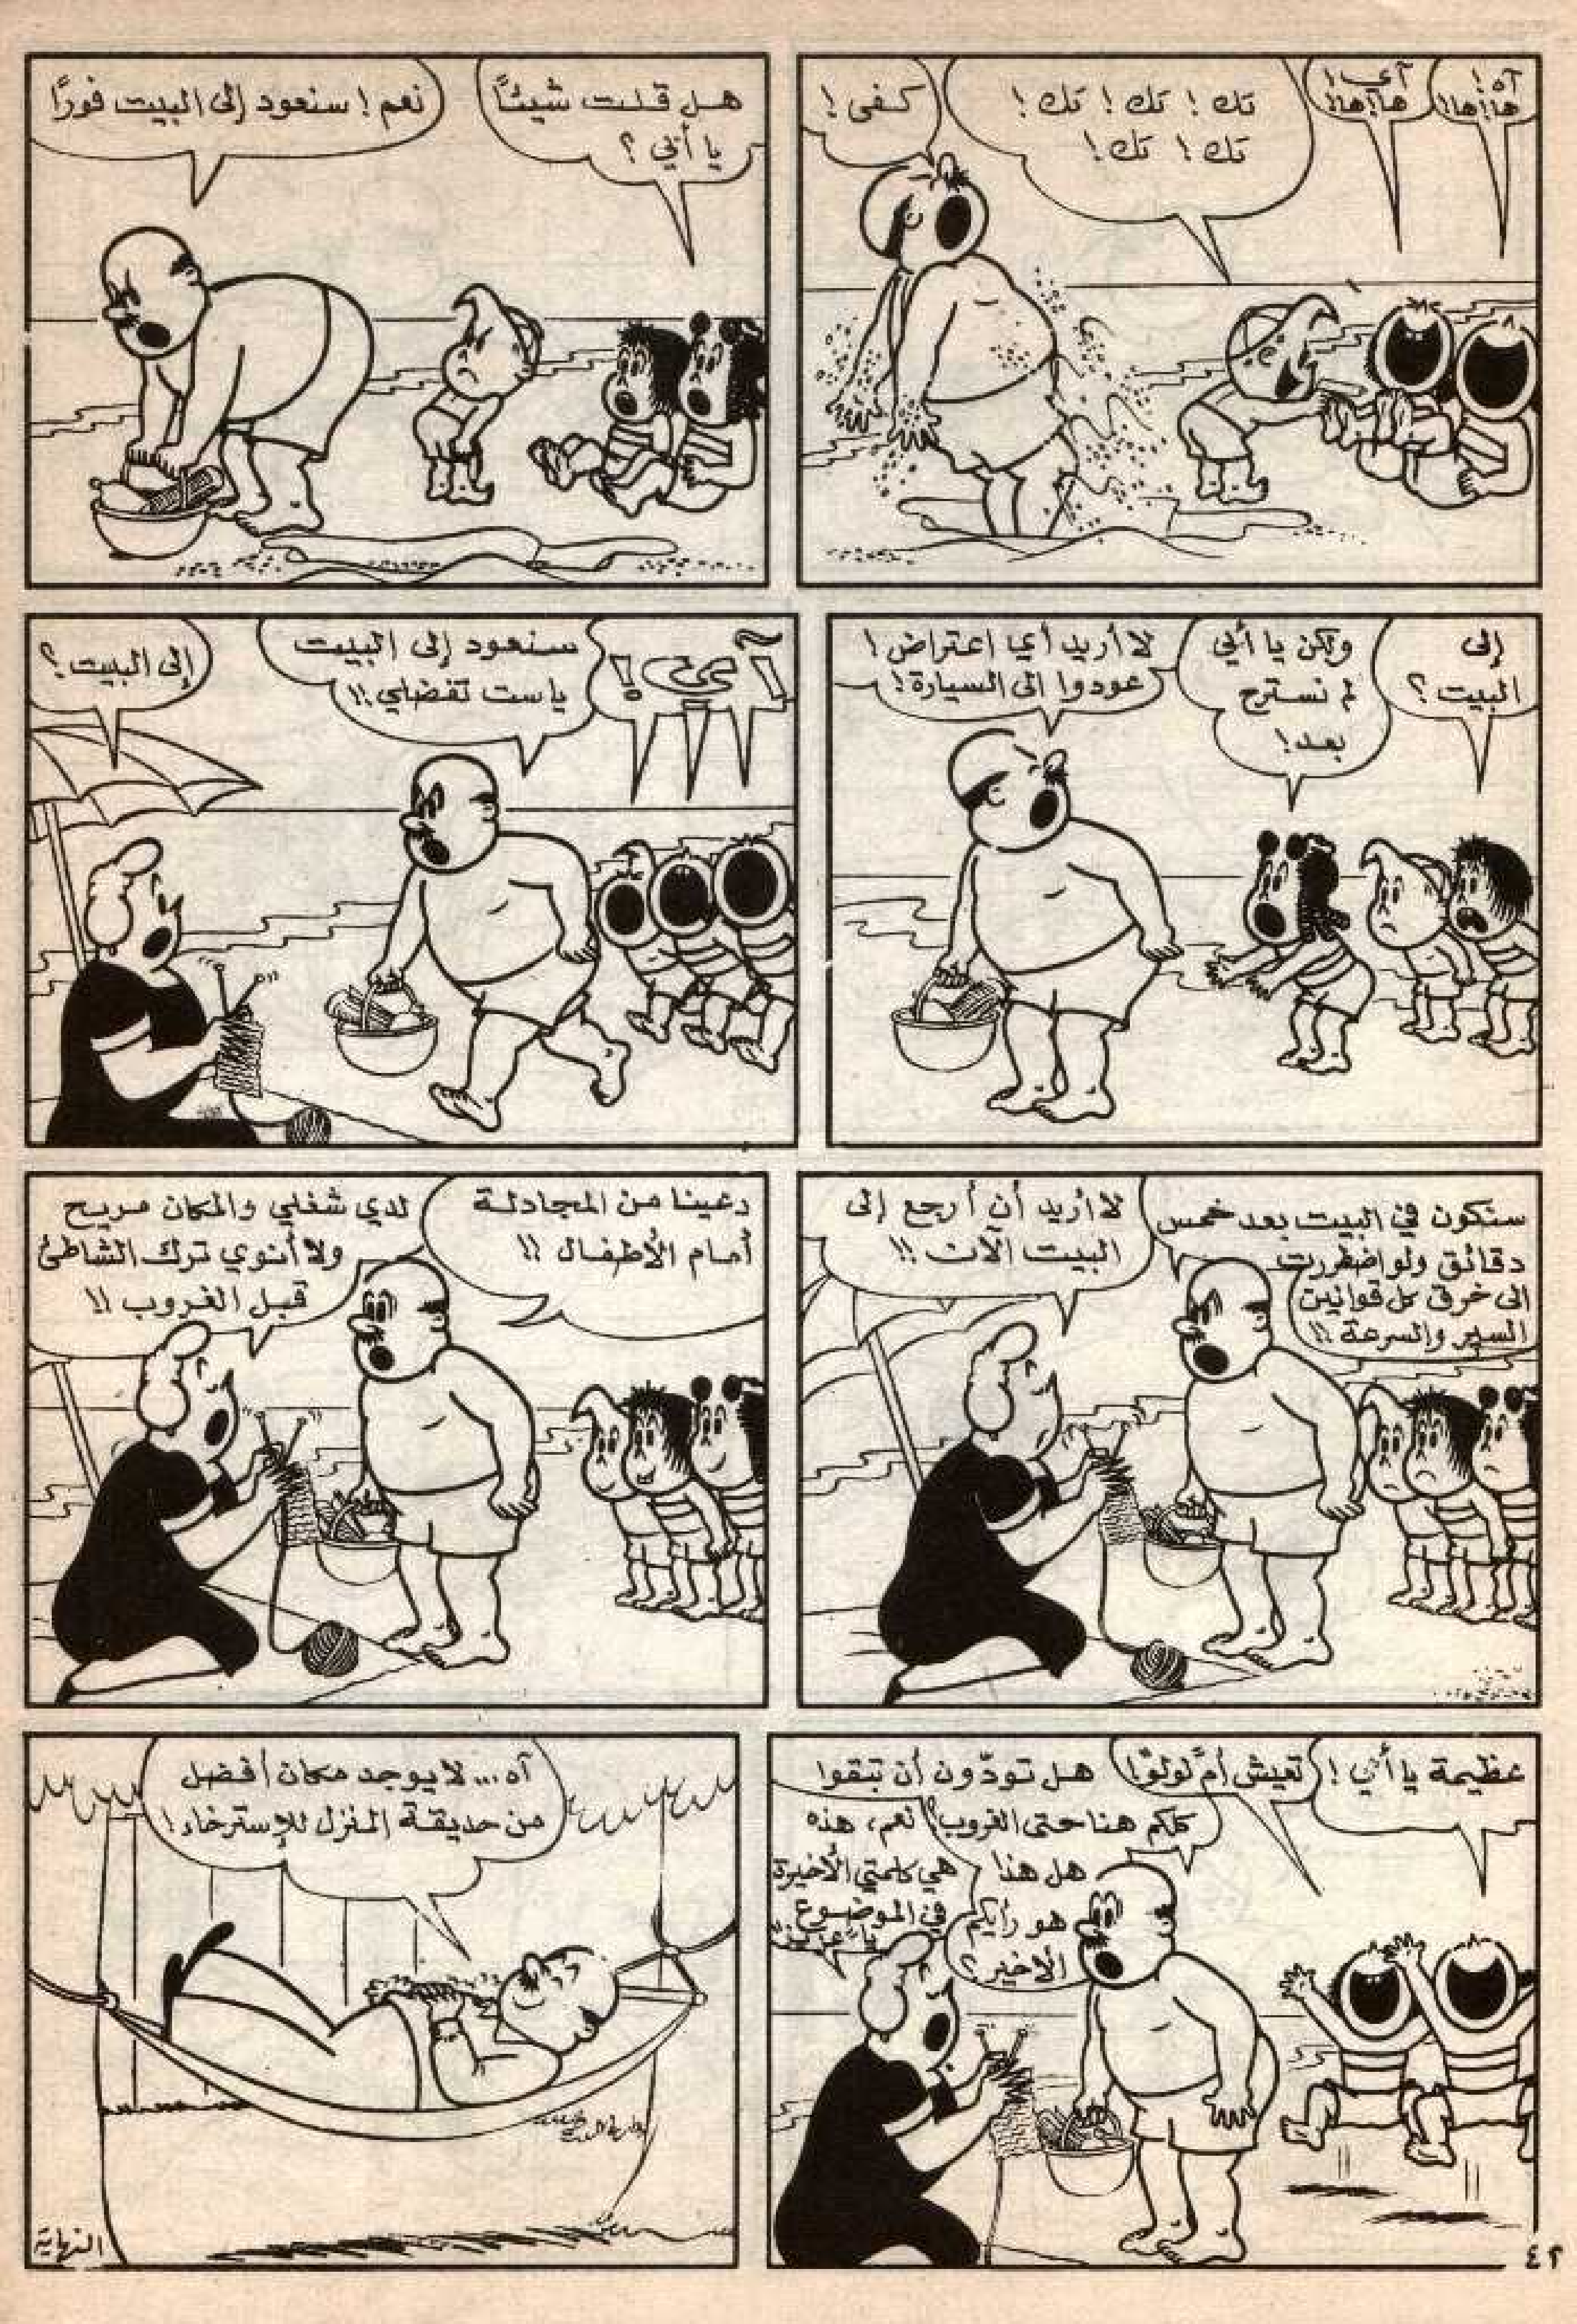 آه!
ها!ها!!
آي!
ها!ها!!
تك! تك! تك!
تك! تك!
كفى!
هل قلت شيئاً
يا أبي؟
نعم! سنعود إلى البيت فورًا
إلى
البيت؟
ولكن يا أبي
لم نسترح
بعد!
لا أريد أيما اعتراض!
عودوا الى السيارة!
آي!
سنعود إلى البيت
يا ست تفضلي!!
إلى البيت؟
سنكون في البيت بعد خمس
دقائق ولو اضطررت
الى خرق كل قوانين
السير والسرعة!!
لا أريد أن أرجع إلى
البيت الآن!!
دعينا من المجادلة
أمام الأطفال!!
لدي شغلي والمكان مريح
ولا أنوي ترك الشاطئ
قبل الغروب!!
عظيمة يا أمي!
تعيش أم لولو!
هل تودّون أن تبقوا
كلكم هنا حتى الغروب؟
هل هذا
هو رأيكم
الأخير؟
نعم، هذه
هي كلمتي الأخيرة
في الموضوع
يا عزيزي
آه... لا يوجد مكان أفضل
من حديقة المنزل للإسترخاء!
النهاية
٤٢